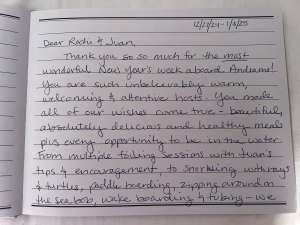 12/27/24-1/3/25
Dear Rocio & Juan,
Thank you so so much for the most
wonderful New Year's week aboard Andiamo!
You are such unbelievably warm,
welcoming & attentive hosts. You made
all of our wishes come true - beautiful,
absolutely delicious and healthy meals
plus every opportunity to be in the water
from multiple foiling sessions with Juan's
tips & encouragement, to snorkeling with rays
& turtles, paddle boarding, zipping around on
the sea bob, wake boarding & tubing - we